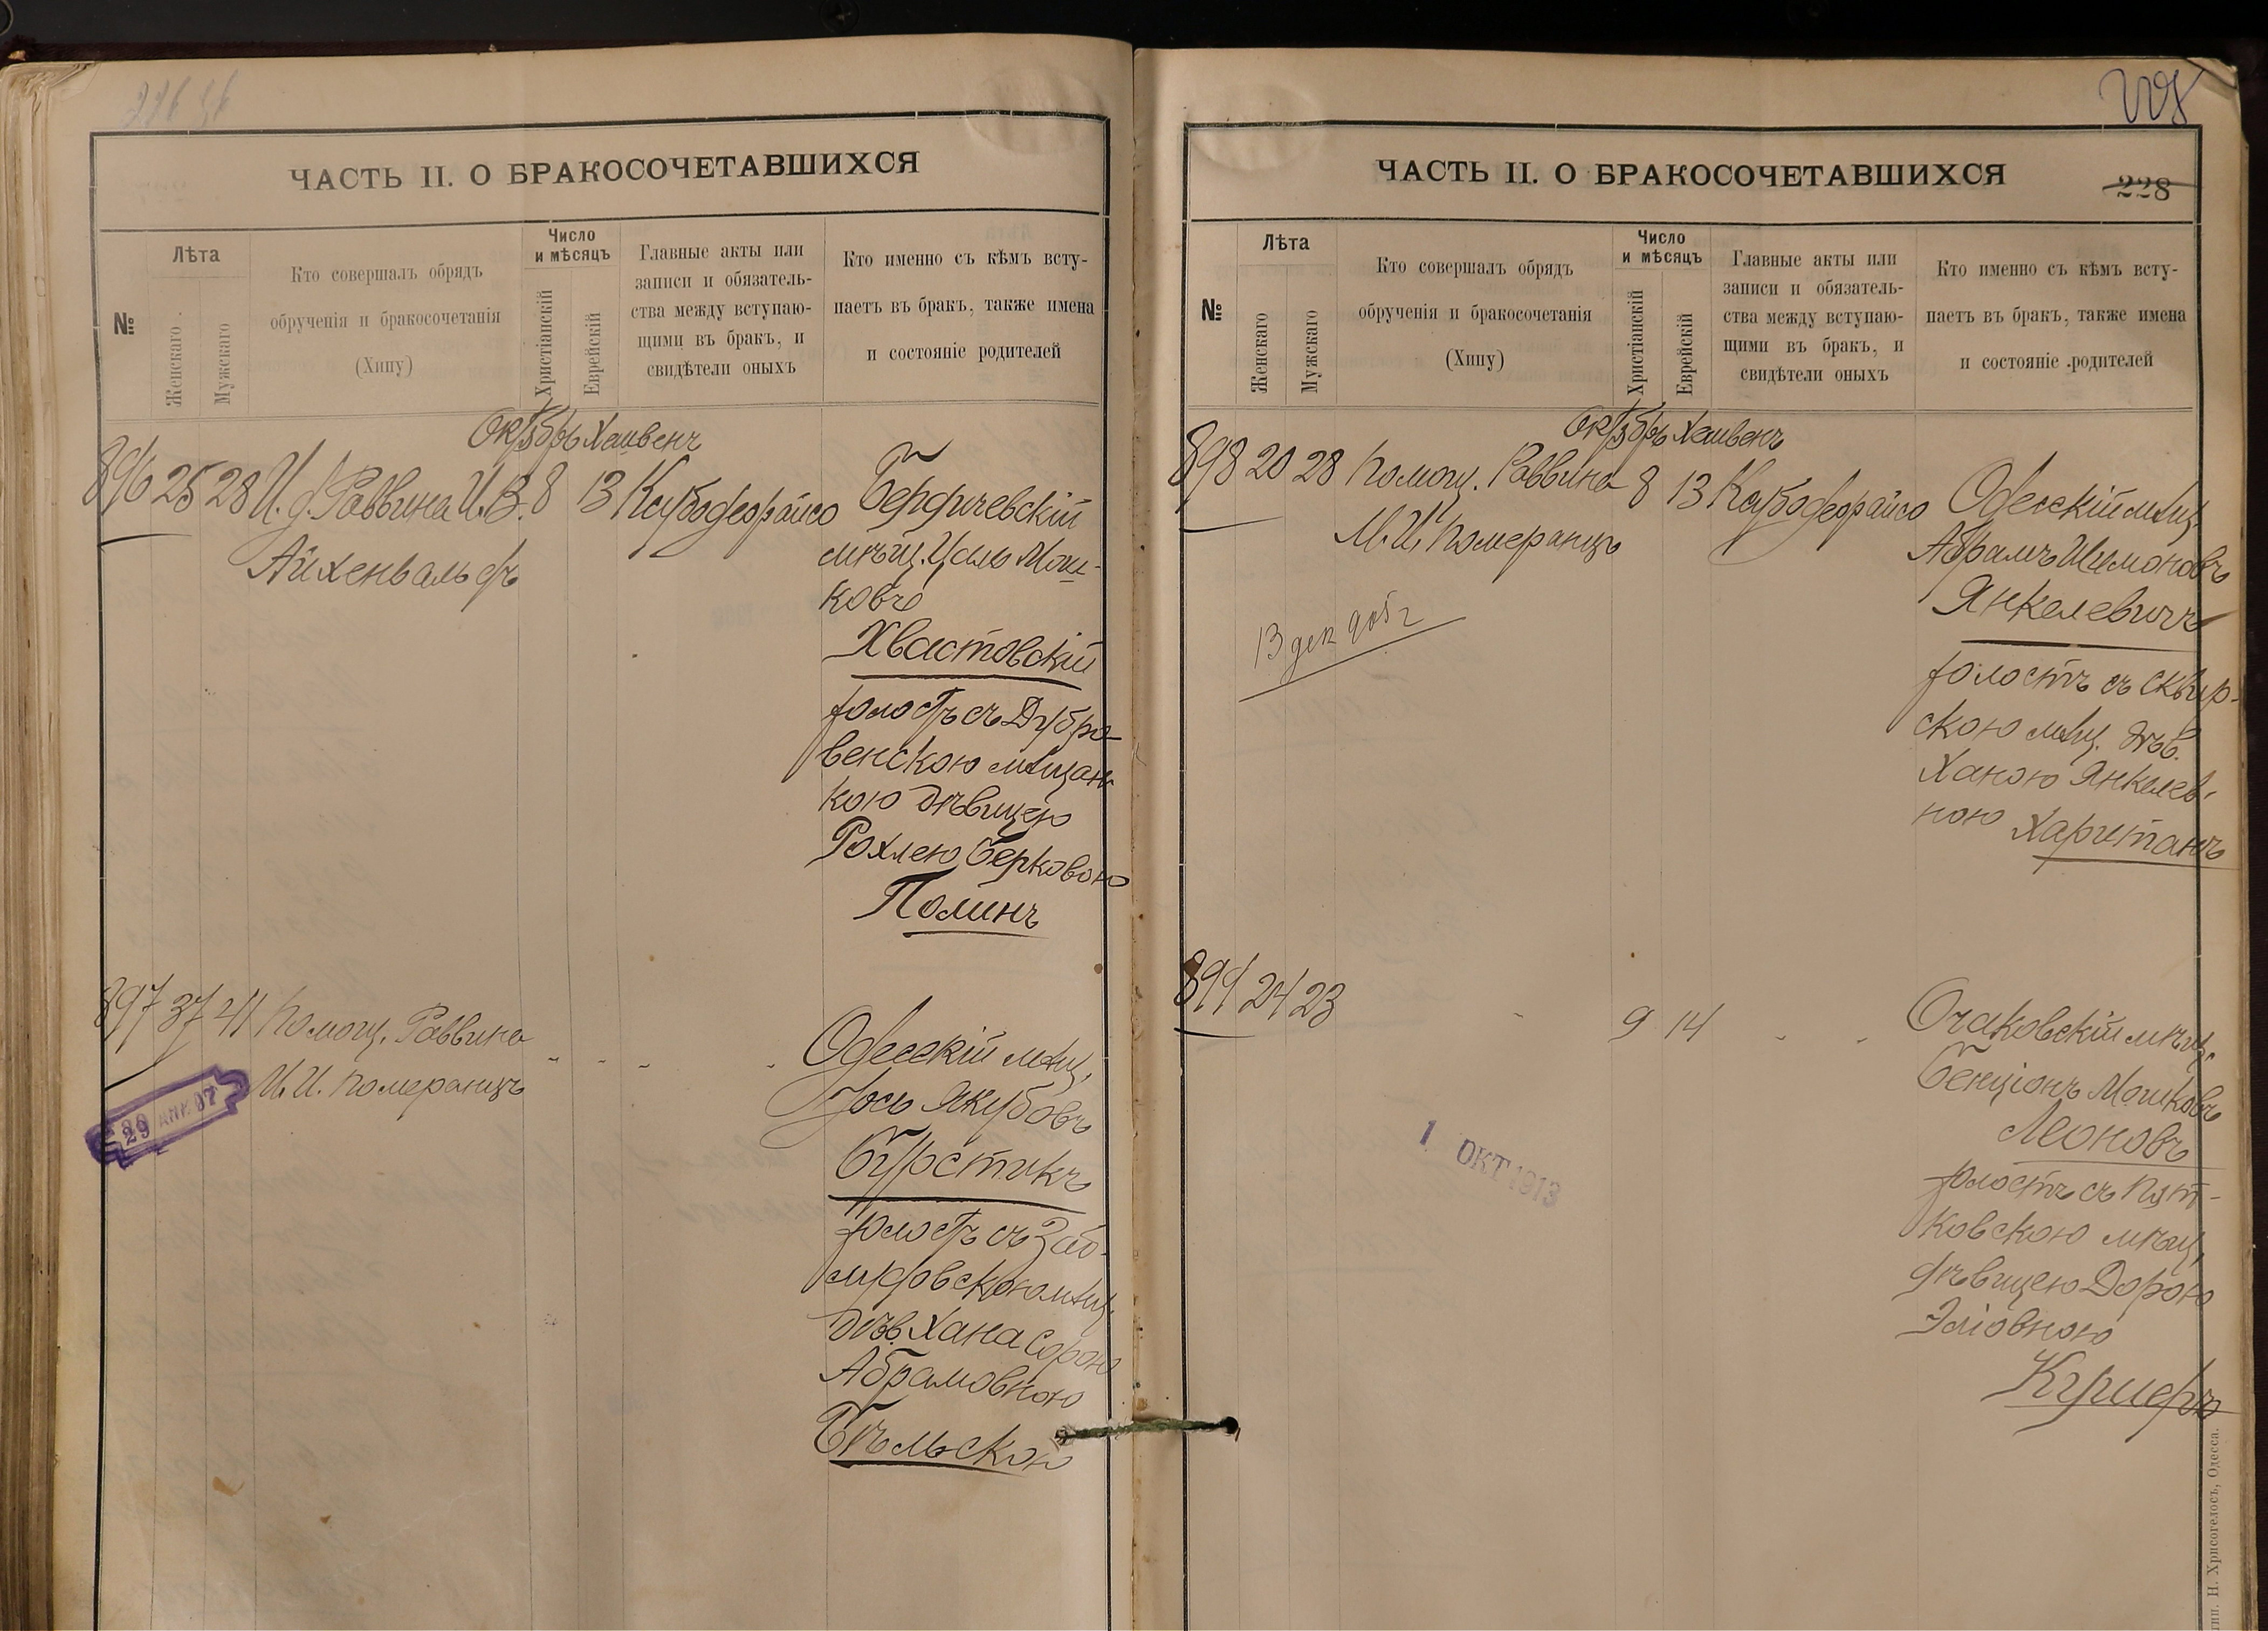 ЧАСТЬ II. О БРАКОСОЧЕТАВШИХСЯ
№
Лѣта
Женскаго
Мужскаго
Кто совершалъ обрядъ
обрученія и бракосочетанія
(Хипу)
Число
и мѣсяцъ
Христіанскій
Еврейскій
Главные акты или
записи и обязатель-
ства между вступаю-
щими въ бракъ, и
свидѣтели оныхъ
Кто именно съ кѣмъ всту-
паетъ въ бракъ, также имена
и состояніе родителей
Октябрь Хешвенъ
896 25 28 И. д. Раввина И. В. 8 13 Ксубодеорайсо
Айхенвальдъ
Бердичевскій
мѣщ. Цаль Мош-
ковъ
Хвастовскій
холостъ съ Дубро-
венскою мѣщан
кою дѣвицею
Рохлею Берковою
Полинъ
897 37 41 Помощ. Раввина - - - -
И. И. Померанцъ
29 АПР 07
Одесскій мѣщ.
Іось Якубовъ
Бурстикъ
холостъ съ Заб-
лудовскою мѣщ.
дѣв. Хана Сорою
Абрамовною
Бѣльскою
228
ЧАСТЬ II. О БРАКОСОЧЕТАВШИХСЯ
228
№
Лѣта
Женскаго
Мужскаго
Кто совершалъ обрядъ
обрученія и бракосочетанія
(Хипу)
Число
и мѣсяцъ
Христіанскій
Еврейскій
Главные акты или
записи и обязатель-
ства между вступаю-
щими въ бракъ, и
свидѣтели оныхъ
Кто именно съ кѣмъ всту-
паетъ въ бракъ, также имена
и состояніе родителей
Октябрь Хешвенъ
898 20 28 Помощ. Раввина 8 13 Ксубодеорайсо
М. И. Померанцъ
13 дек 905 г
Одесскій мѣщ.
Абрамъ Шимоновъ
Янкелевичъ
холостъ съ Сквир-
скою мѣщ. дѣв.
Ханою Янкелев-
ною Хаританъ
899 24 23 - 9 14 - -
1 ОКТ 1913
Очаковскій мѣщ.
Бенціонъ Мошковъ
Леоновъ
холостъ съ Пят-
ковскою мѣщ.
дѣвицею Дорою
Эліовною
Кушеръ
тип. Н. Хрисогелосъ, Одесса.